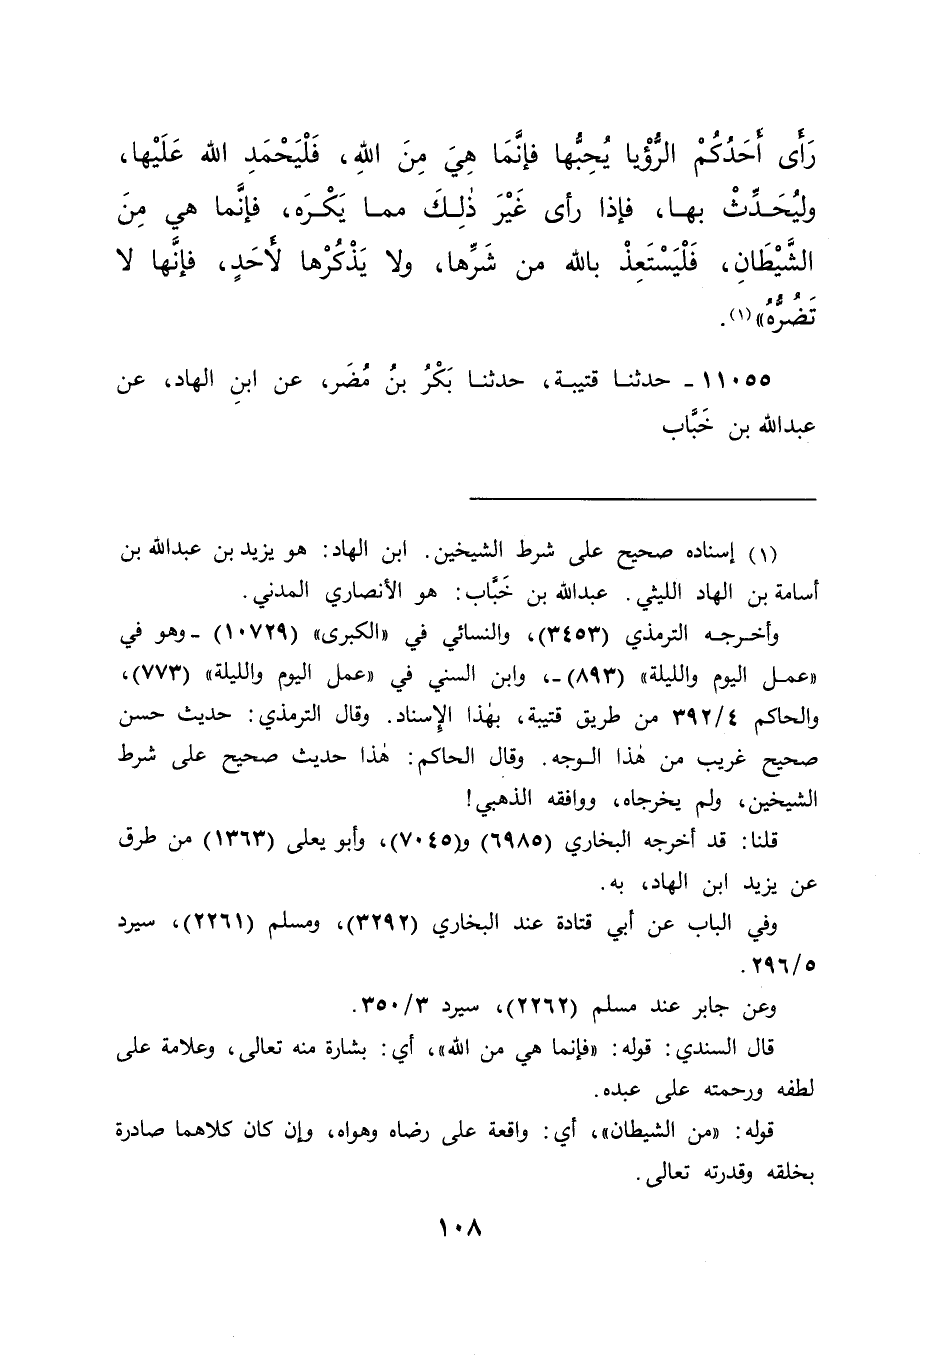 رَأَى أَحَدُكُمْ الرُّؤْيا يُحِبُّها فإنَّمَا هِيَ مِنَ اللهِ، فَلْيَحْمَدِ الله عَلَيْها،
وليُحَـدِّثْ بهـا، فـإذا رأى غَيْرَ ذٰلِـكَ ممـا يَكْـرَه، فإنَّما هي مِنَ
الشَّيْطَانِ، فَلْيَسْتَعِذْ بالله من شَرِّها، ولا يَذْكُرْها لأَحَدٍ، فإنَّها لا
تَضُرُّهُ»(١).
١١٠٥٥ ـ حدثنـا قتيبـة، حدثنـا بَكْرُ بنُ مُضَر، عن ابنِ الهاد، عن
عبدالله بن خَبَّاب
(١) إسناده صحيح على شرط الشيخين. ابن الهاد: هو يزيد بن عبدالله بن
أسامة بن الهاد الليثي. عبدالله بن خَبَّاب: هو الأنصاري المدني.
وأخـرجـه الترمذي (٣٤٥٣)، والنسائي في «الكبرى» (١٠٧٢٩) ـ وهو في
«عمـل اليوم والليلة» (٨٩٣) ـ، وابن السني في «عمل اليوم والليلة» (٧٧٣)،
والحاكم ٣٩٢/٤ من طريق قتيبة، بهٰذا الإِسناد. وقال الترمذي: حديث حسن
صحيح غريب من هٰذا الـوجه. وقال الحاكم: هٰذا حديث صحيح على شرط
الشيخين، ولم يخرجاه، ووافقه الذهبي!
قلنا: قد أخرجه البخاري (٦٩٨٥) و(٧٠٤٥)، وأبو يعلى (١٣٦٣) من طرق
عن يزيد ابن الهاد، به.
وفي الباب عن أبي قتادة عند البخاري (٣٢٩٢)، ومسلم (٢٢٦١)، سيرد
٢٩٦/٥.
وعن جابر عند مسلم (٢٢٦٢)، سيرد ٣٥٠/٣.
قال السندي: قوله: «فإنما هي من الله»، أي: بشارة منه تعالى، وعلامة على
لطفه ورحمته على عبده.
قوله: «من الشيطان»، أي: واقعة على رضاه وهواه، وإن كان كلاهما صادرة
بخلقه وقدرته تعالى.
١٠٨